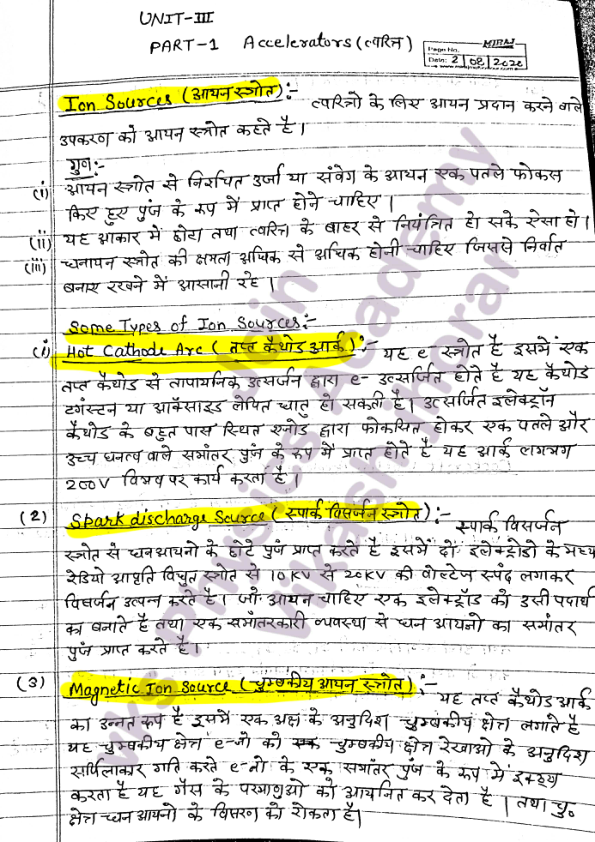 UNIT-III
PART-1 Accelerators (त्वरित्र)
MIRAJ
Page No.
Date: 2/08/2020
Ion Sources (आयन स्त्रोत):- त्वरित्रो के लिए आयन प्रदान करने वाले
उपकरण को आयन स्त्रोत कहते है।
गुण:-
(i) आयन स्त्रोत से निश्चित उर्जा या संवेग के आयन एक पतले फोकस
किए हुए पुंज के रूप में प्राप्त होने चाहिए।
(ii) यह आकार में छोटा तथा त्वरित्र के बाहर से नियंत्रित हो सके ऐसा हो।
(iii) धनायन स्त्रोत की क्षमता अधिक से अधिक होनी चाहिए जिससे निर्वात
बनाए रखने में आसानी रहे।
Some Types of Ion Sources:-
(i) Hot Cathode Arc (तप्त कैथोड आर्क):- यह e स्त्रोत है इसमें एक
तप्त कैथोड से तापायनिक उत्सर्जन द्वारा e- उत्सर्जित होते है यह कैथोड
टंगस्टन या ऑक्साइड लेपित धातु हो सकती है। उत्सर्जित इलेक्ट्रॉन
कैथोड के बहुत पास स्थित एनोड द्वारा फोकसित होकर एक पतले और
उच्च घनत्व वाले समांतर पुंज के रूप में प्राप्त होते है यह आर्क लगभग
200V विभव पर कार्य करता है।
(2) Spark discharge Source (स्पार्क विसर्जन स्त्रोत):- स्पार्क विसर्जन
स्त्रोत से धनआयनो के छोटे पुंज प्राप्त करते है इसमें दो इलेक्ट्रोडो के मध्य
रेडियो आवृति विधुत स्त्रोत से 10KV से 20KV की वोल्टेज स्पंद लगाकर
विसर्जन उत्पन्न करते है। जो आयन चाहिए एक इलेक्ट्रॉड को उसी पदार्थ
का बनाते है तथा एक समांतरकारी व्यवस्था से धन आयनो का समांतर
पुंज प्राप्त करते है।
(3) Magnetic Ion Source (चुम्बकीय आयन स्त्रोत):- यह तप्त कैथोड आर्क
का उन्नत रूप है इसमें एक अक्ष के अनुदिश चुम्बकीय क्षेत्र लगाते है
यह चुम्बकीय क्षेत्र e-नो को चुम्बकीय क्षेत्र रेखाओ के अनुदिश
सर्पिलाकार गति करते e-नो के एक समांतर पुंज के रूप में इकठ्ठा
करता है यह गैस के परमाणुओ को आयनित कर देता है। तथा चु०
क्षेत्र धन आयनो के विसरण को रोकता है।